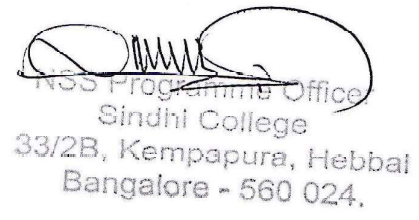 NSS Programme Officer
Sindhi College
33/2B, Kempapura, Hebbal
Bangalore - 560 024.